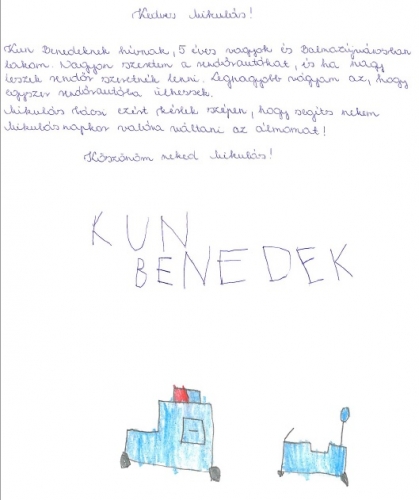 Kedves Mikulás!
Kun Benedeknek hívnak, 5 éves vagyok és Balmazújvárosban
lakom. Nagyon szeretem a rendőrautókat, és ha nagy
leszek rendőr szeretnék lenni. Legnagyobb vágyam az, hogy
egyszer rendőrautóba ülhessek.
Mikulás bácsi ezért kérlek szépen, hogy segíts nekem
Mikulásnapkor valóra váltani az álmomat!
Köszönöm neked Mikulás!
KUN
BENEDEK